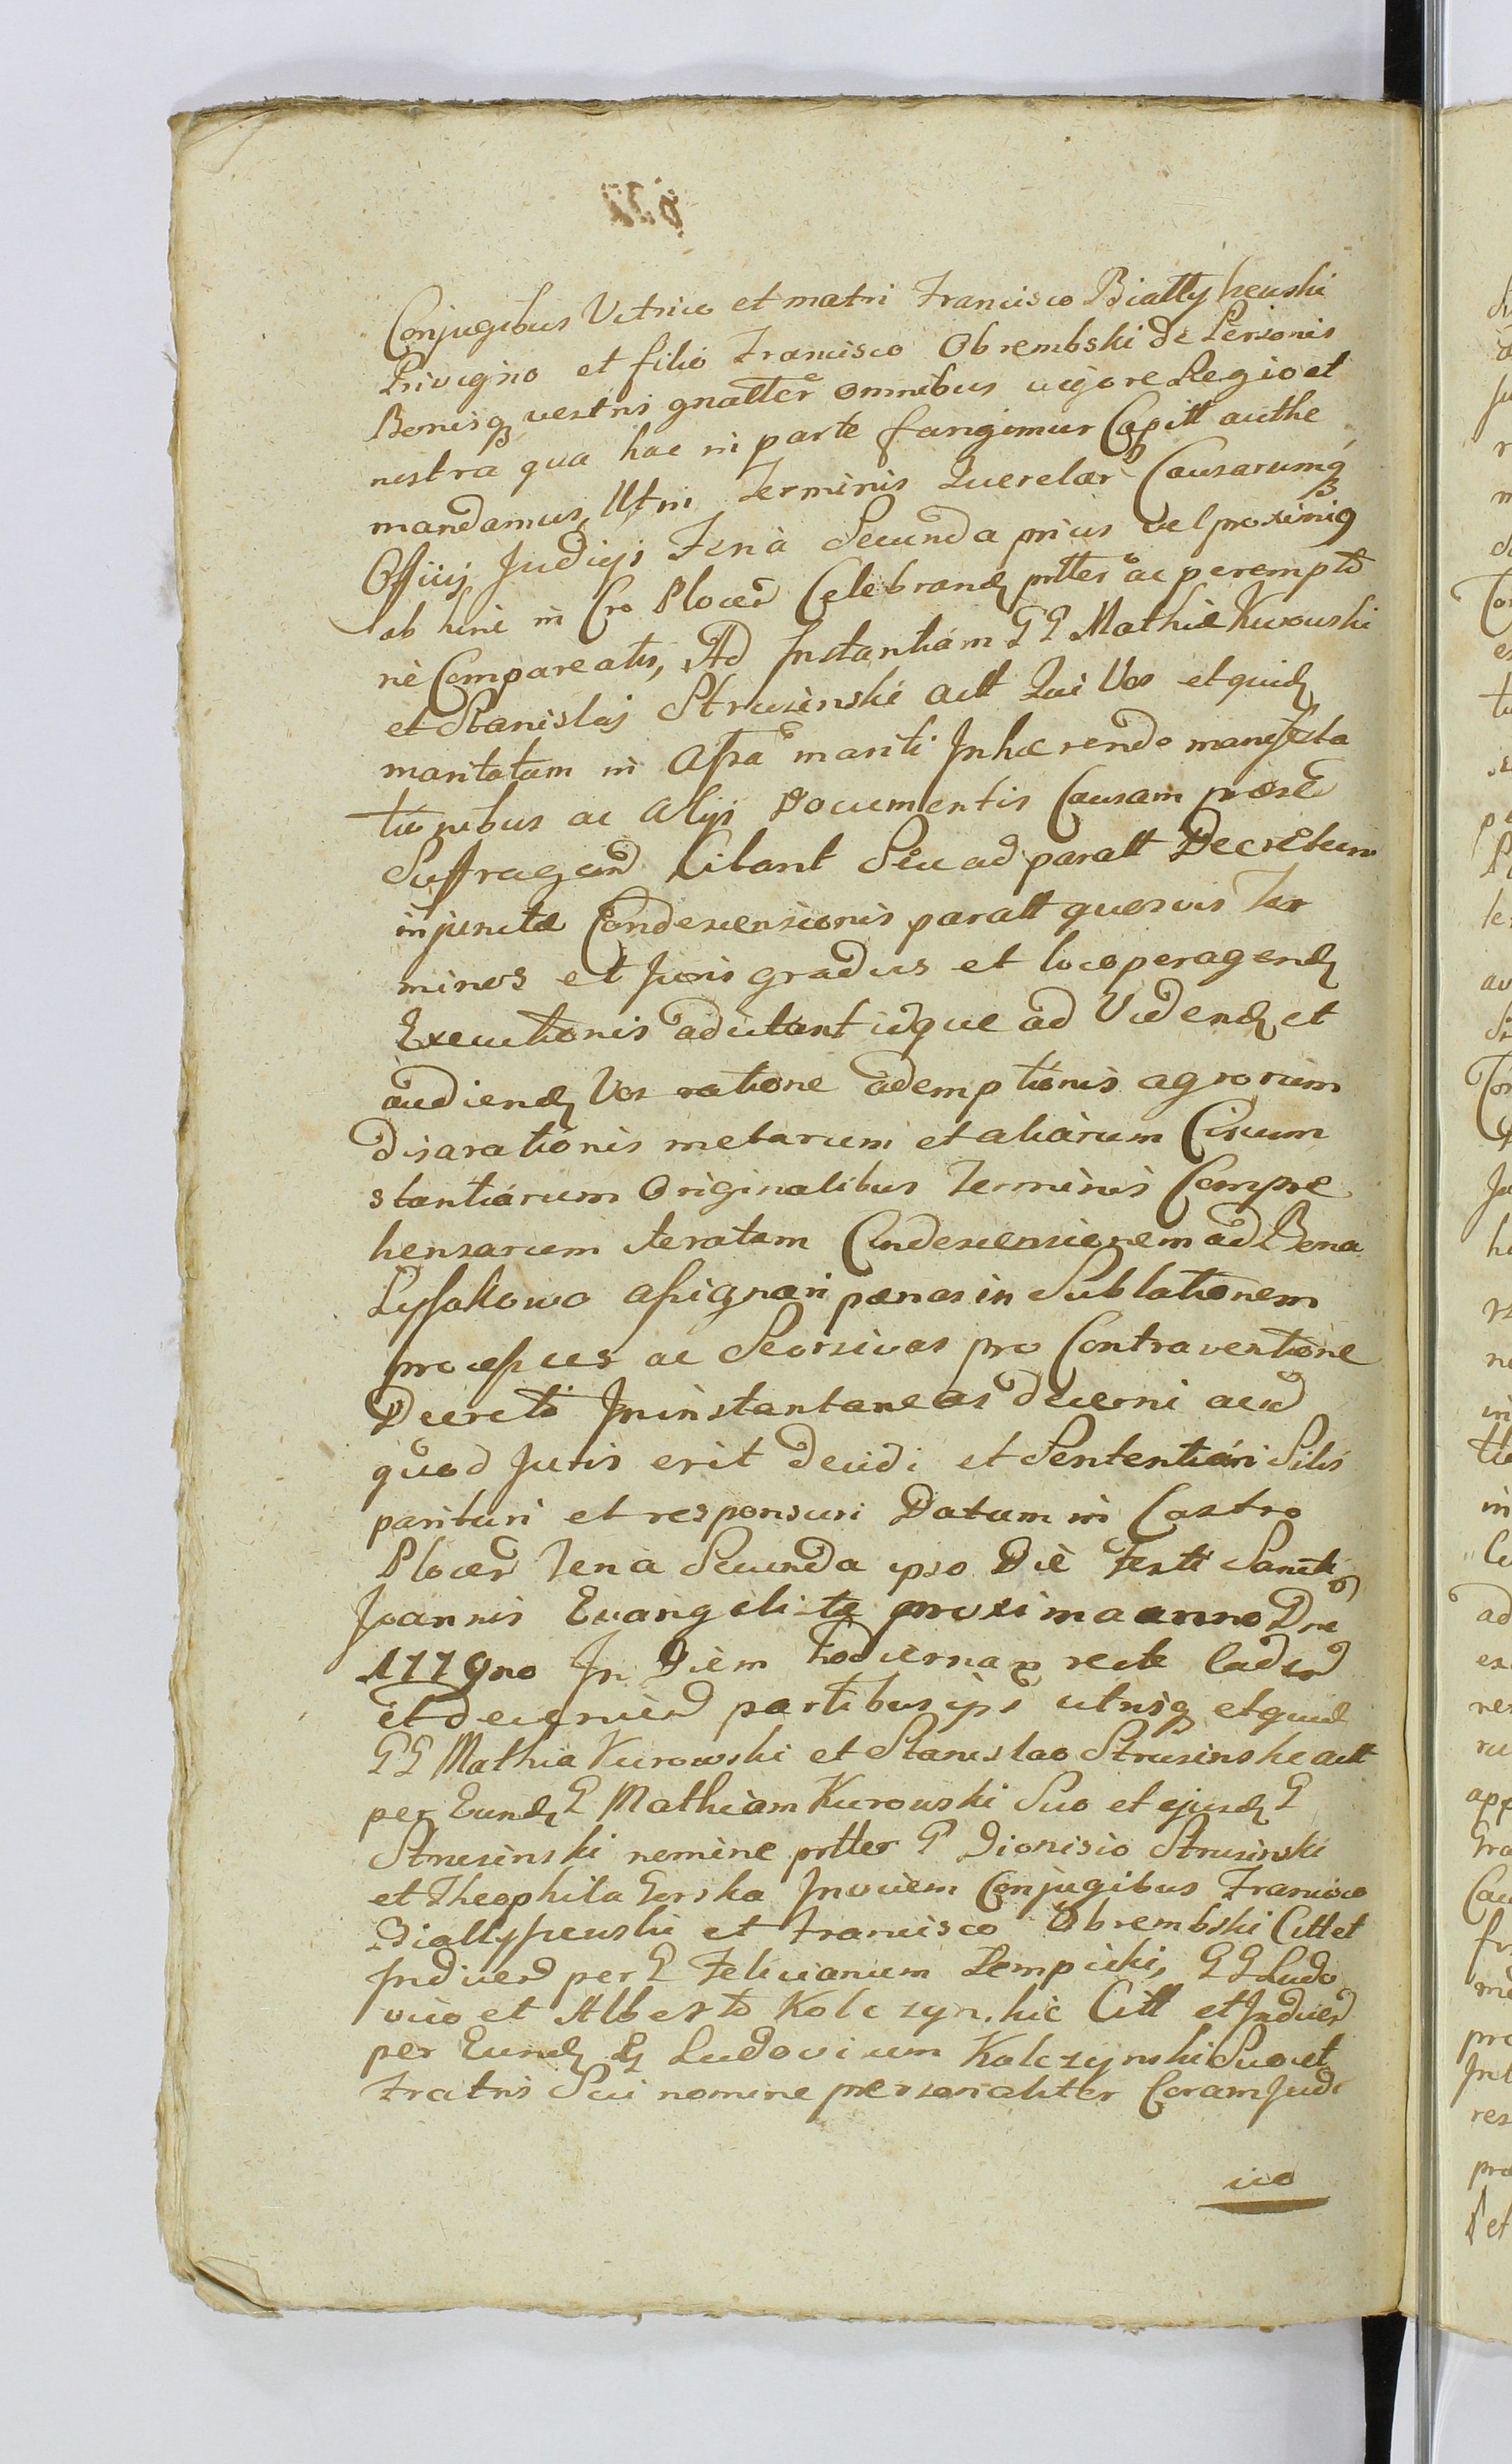 Conjugibus Vitrico et matri Francisco Biallyszewski
Privigno et filio Francisco Obrembski de Personis
Bonisq vestris gnalter omnibus vigore Regio et
nostra qua hac in parte fungimur Capitt authe
mandamus, Ut in Terminis Querelar Causarumq
Officij Judicijs Feria Secunda prius vel proximiq
ab hinc in Cro Plocen Celebrand prtter ac perempto
rie Compareatis, Ad Instantiam GG Mathiæ Kurowski
et Stanislaj Strusinski Actt Qui Vos et quid
maritatam in Assa mariti Inhærendo manifesta
tionibus ac alijs Documentis Causam præse
Suffragan Citant Seu ad paratt Decretum
injunctæ Condescensionis paratt quosvis Ter
minos et Juris gradus et loco peragend
Executionis adcitant idque ad Vidend et
audiend Vos ratione ademptionis agrorum
disarationis metarum et aliarum Circum
stantiarum Originalibus Terminis Compre
hensarum iteratam Condescensionem ad Bona
Lyssakowo assignari pænas in Sublationem
processus ac Seorsivas pro Contraventione
Decreti Ininstantaneas decerni acid
quod Juris erit decidi et Sententiari Sitis
parituri et responsuri Datum in Castro
Plocen Feria Secunda ipso Die Festi Sancti
Joannis Evangelistæ proxima anno Dni
1779no In Diem hodierna recte Caden
et decernen partibus ipsi utrisq et quid
GG Mathia Kurowski et Stanislao Strusinski Actt
per Eund G Mathiam Kurowski Suo et ejusd G
Strusinski nomine prtter G Dionisio Strusinski
et Theophila Gorska Invicem Conjugibus Francisco
Biallyszewski et Francisco Obrembski Citt et
Inducen per G Felicianum Lempicki, GG Ludo
vico et Alberto Kolczynskie Citt et Inducen
per Eund G Ludovicum Kolczynski Suo et
Fratris Sui nomine personaliter Coram Judi
cio